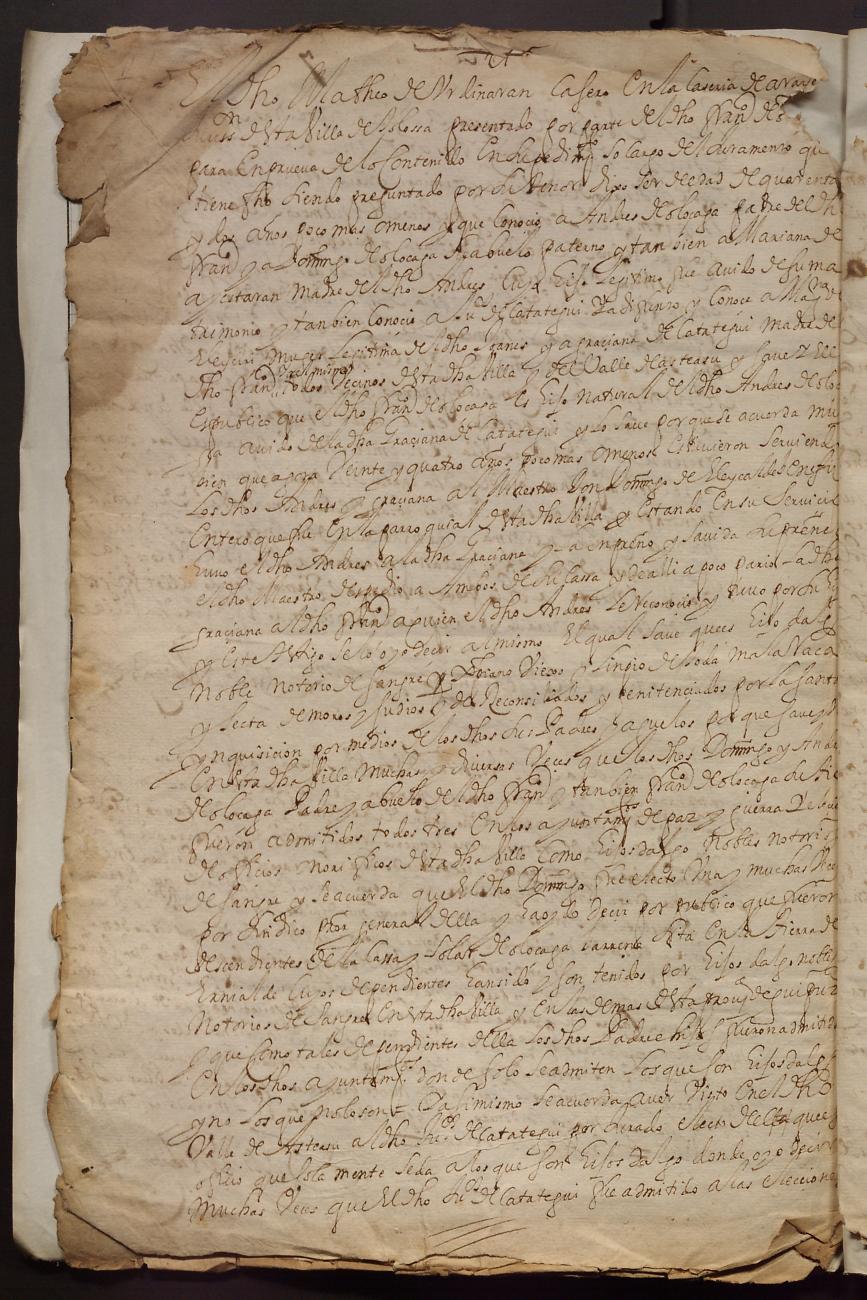 El dho Matheo de Urlinaran Casero En la Caseria de
desta Villa de Tolossa presentado por parte del dho fran.co de
para En prueva de lo Contenido En su pedim.to so Cargo del Juramento que
tiene fho siendo preguntado por su tenor dixo ser de edad de quarenta
y dos años poco mas o menos y que Conocio a Andres de olocaga padre del dh
fran.co y a Domingo de olocaga su abuelo paterno y tan bien a Mariana de
ayestaran madre del dho Andres Cuyo hijo legitimo fue avido de su ma
trimonio y tanbien Conocio a Ju.o de Catategui y Conoce a Mar.a de
muger Legitima del dho Joanes y a graciana de Catategui madre de
dho fran.co todos Vecinos desta dha Villa y del Valle de asteasu y save
Es publico que el dho fran.co de olocaga Es hijo natural del dho Andres de oloc
ga avido de la dha Graciana de Catategui y Lo save porque se acuerda muy
bien que agora Veinte y quatro años poco mas o menos Estuvieron Serviendo
Los dhos Andres y graciana al Maestro Don Domingo de
Entero que fue En la parroquial desta dha Villa y Estando En su Servicio
tuvo el dho Andres a la dha Graciana y La enpreño y savida La preñe
el dho Maestro despedio a Ambos de su cassa y de alli a poco pario La dha
graciana al dho fran.co a quien el dho Andres Le Reconocio y tuvo por su hijo
y Este testigo se lo oyo decir al mismo El qual save que es hijo dalgo
Noble notorio de sangre y Xpiano Viejo y limpio de toda mala Raca
y secta de moros y judios y de Reconsiliados y penitenciados por la santa
ynquisicion por medios de los dhos sus Padres y aguelos por que save q
En esta dha Villa muchas y diversas Veces que los dhos Domingo y Andr
de olocaga Padre y abuelo del dho fran.co y tanbien fran.co de olocaga
fueron admitidos todos tres En los ayuntam.tos de paz y guerra
de officios onorificos desta dha Villa Como hijos dalgo Nobles notorios
de sangre y se acuerda que El dho Domingo fue electo Una y muchas Vec
por Sindico pror general della y ha oydo decir por publico que fueron
descendientes de la Cassa y Solar de olocaga Sita En la tierra de
Ernialde Cuyos dependientes han sido y son tenidos por hijos dalgo nobles
Notorios de Sangre En esta dha Villa y En las demas desta prou.a de guipuz
y que Como tales dependientes della Los dhos Padre e hijos fueron admitid
En los dhos ayuntam.tos donde solo se admiten Los que son hijos dalgo
y no Los que no lo son y asimismo se acuerda aver Visto En el dho
Valle de Asteasu al dho Ju.o de Catategui por Jurado electo
oficio que sola mente se da a los que son hijos dalgo donde oyo decir
muchas Veces que El dho Ju.o de Catategui fue admitido a las eleccione